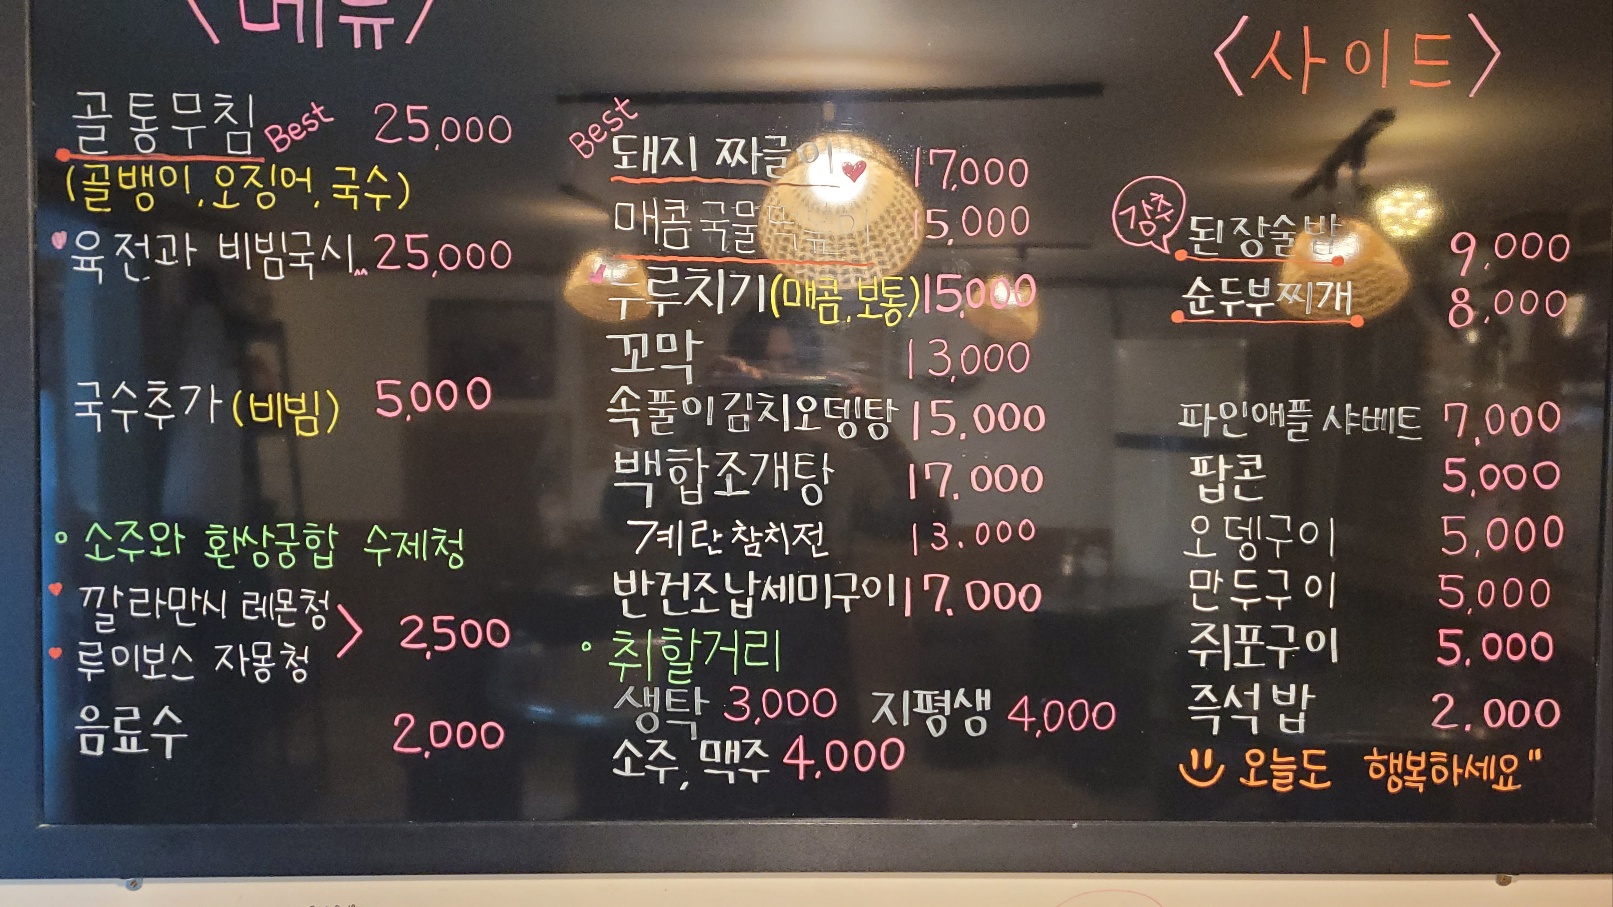 <메뉴>
골통무침 Best 25,000
(골뱅이, 오징어, 국수)
육전과 비빔국시 25,000
국수추가 (비빔) 5,000
소주와 환상궁합 수제청
깔라만시 레몬청
루이보스 자몽청
> 2,500
음료수 2,000
Best
돼지 짜글이 17,000
매콤국물 15,000
두루치기(매콤, 보통) 15,000
꼬막 13,000
속풀이김치오뎅탕 15,000
백합조개탕 17,000
계란참치전 13,000
반건조납세미구이 17,000
취할거리
생탁 3,000 지평생 4,000
소주, 맥주 4,000
<사이드>
강추
된장술밥 9,000
순두부찌개 8,000
파인애플 샤베트 7,000
팝콘 5,000
오뎅구이 5,000
만두구이 5,000
쥐포구이 5,000
즉석밥 2,000
오늘도 행복하세요"